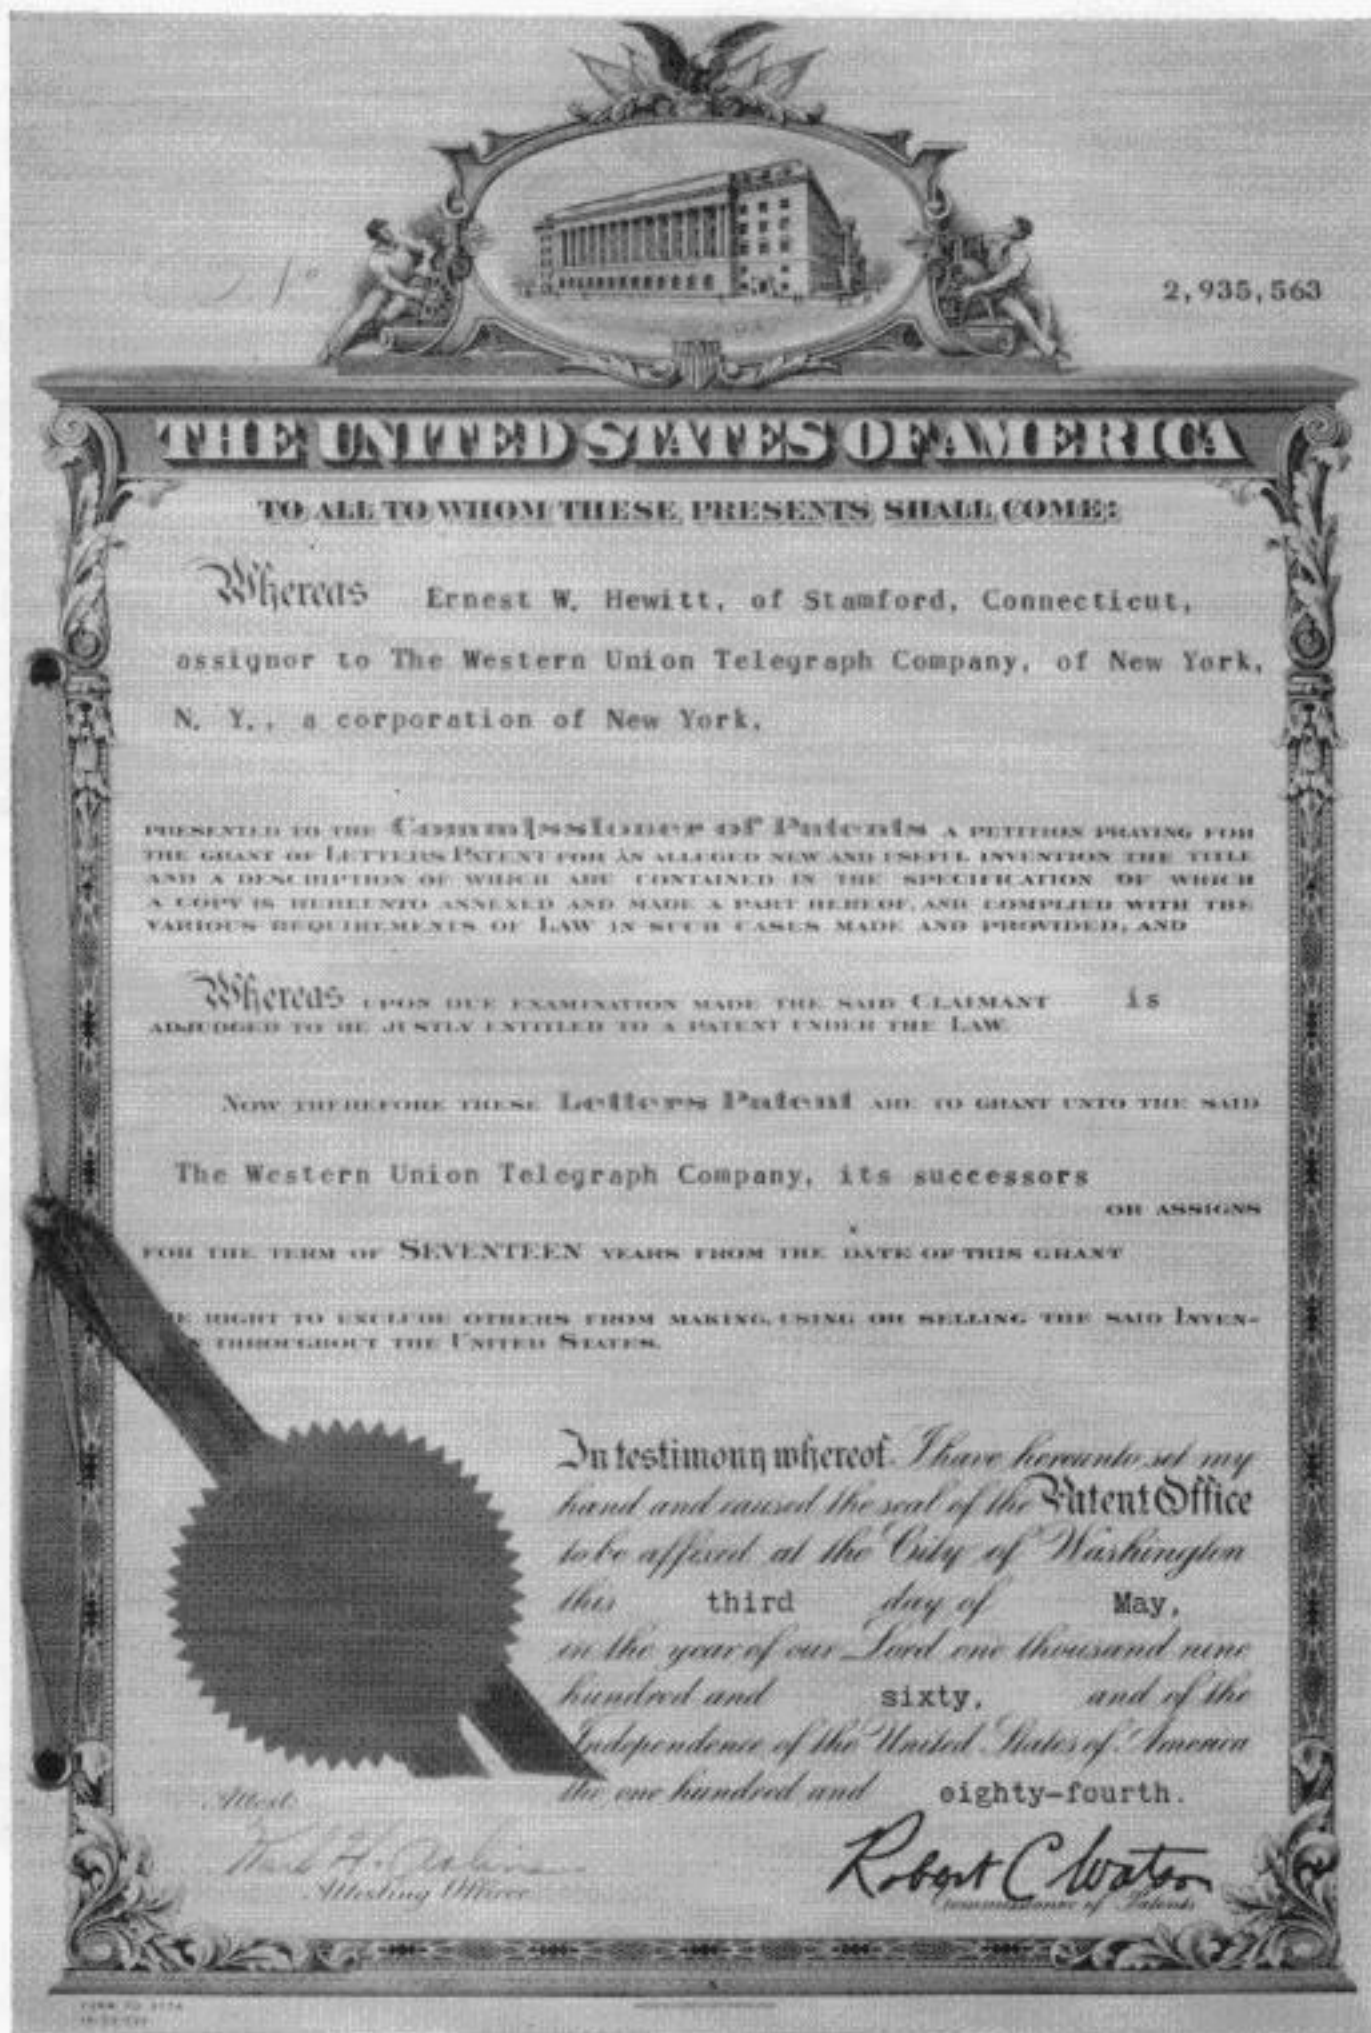 No
2,935,563
THE UNITED STATES OF AMERICA
TO ALL TO WHOM THESE PRESENTS SHALL COME:
Whereas Ernest W. Hewitt, of Stamford, Connecticut,
assignor to The Western Union Telegraph Company, of New York,
N. Y., a corporation of New York,
PRESENTED TO THE Commissioner of Patents A PETITION PRAYING FOR
THE GRANT OF LETTERS PATENT FOR AN ALLEGED NEW AND USEFUL INVENTION THE TITLE
AND A DESCRIPTION OF WHICH ARE CONTAINED IN THE SPECIFICATION OF WHICH
A COPY IS HEREUNTO ANNEXED AND MADE A PART HEREOF, AND COMPLIED WITH THE
VARIOUS REQUIREMENTS OF LAW IN SUCH CASES MADE AND PROVIDED, AND
Whereas UPON DUE EXAMINATION MADE THE SAID CLAIMANT is
ADJUDGED TO BE JUSTLY ENTITLED TO A PATENT UNDER THE LAW.
NOW THEREFORE THESE Letters Patent ARE TO GRANT UNTO THE SAID
The Western Union Telegraph Company, its successors
OR ASSIGNS
FOR THE TERM OF SEVENTEEN YEARS FROM THE DATE OF THIS GRANT
E RIGHT TO EXCLUDE OTHERS FROM MAKING, USING OR SELLING THE SAID INVEN-
N THROUGHOUT THE UNITED STATES.
In testimony whereof, I have hereunto set my
hand and caused the seal of the Patent Office
to be affixed at the City of Washington
this third day of May,
in the year of our Lord one thousand nine
hundred and sixty, and of the
Independence of the United States of America
the one hundred and eighty-fourth.
Attest:
Attesting Officer
Robert C Watson
Commissioner of Patents